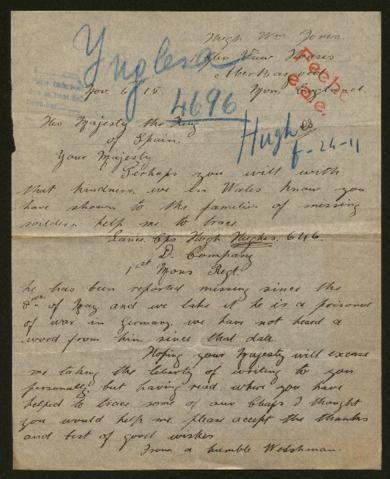 Hugh Wm Jones
View Houses
Abertysswg
Mon. England
Nov. 6. 15.
Inglesa
4696
Fecho
Hughes
f-26-11
His Majesty the King
of Spain.
Your Majesty
Perhaps you will with
that kindness we in Wales know you
have shown to the families of missing
soldiers help me to trace
Lance Cpl Hugh Hughes. 646
D. Company
1st Mons Regt
he has been reported missing since the
8th of May and we take it he is a prisoner
of war in Germany. we have not heard a
word from him since that date.
Hoping your Majesty will excuse
me taking the liberty of writing to you
personally. but having read where you have
helped to trace some of our Chaps I thought
you would help me. please accept the thanks
and best of good wishes
From a humble Welshman.